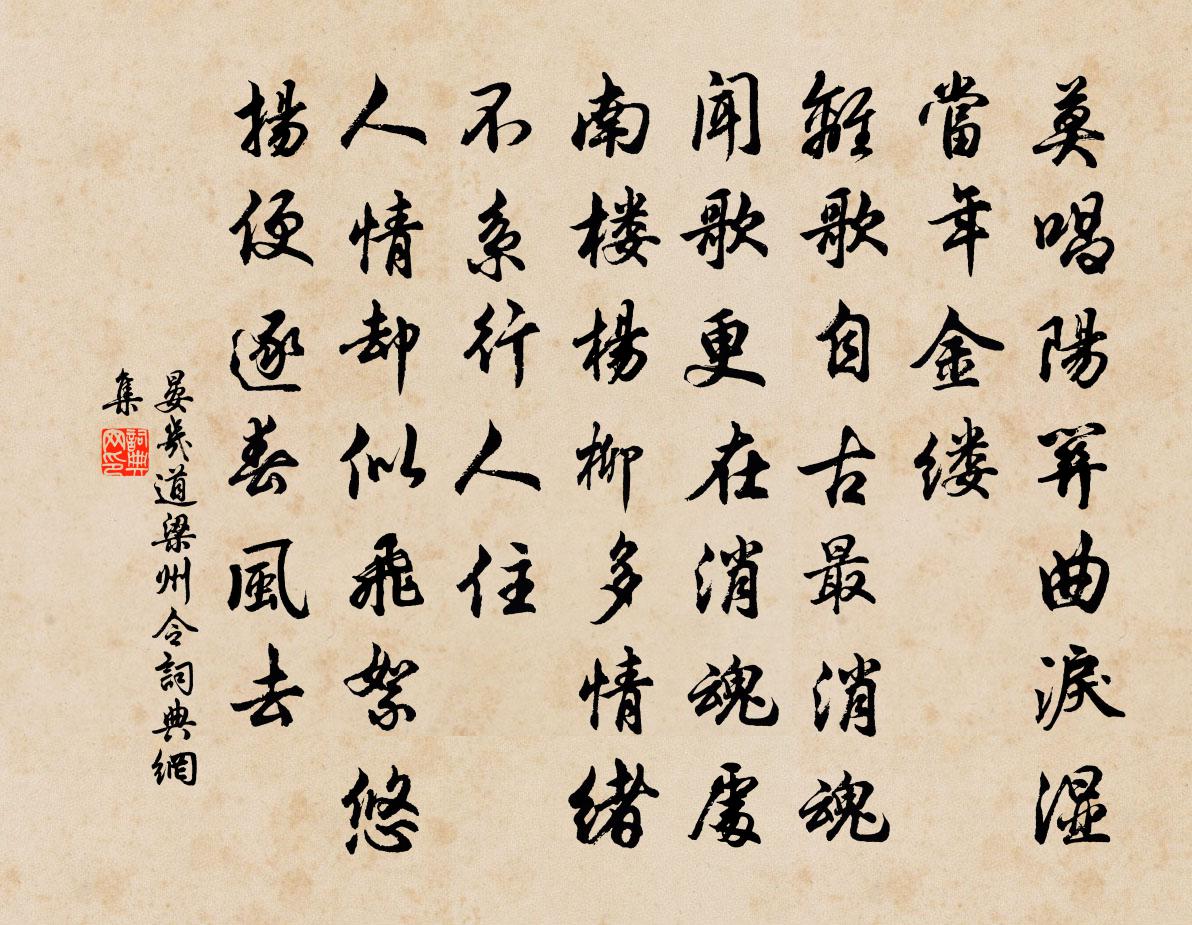 莫唱陽関曲淚湿
當年金缕
離歌自古最消魂
聞歌更在消魂處
南楼楊柳多情緒
不系行人住
人情却似飛絮悠
揚便逐春風去
晏幾道梁州令詞典網
集
詞典
网印